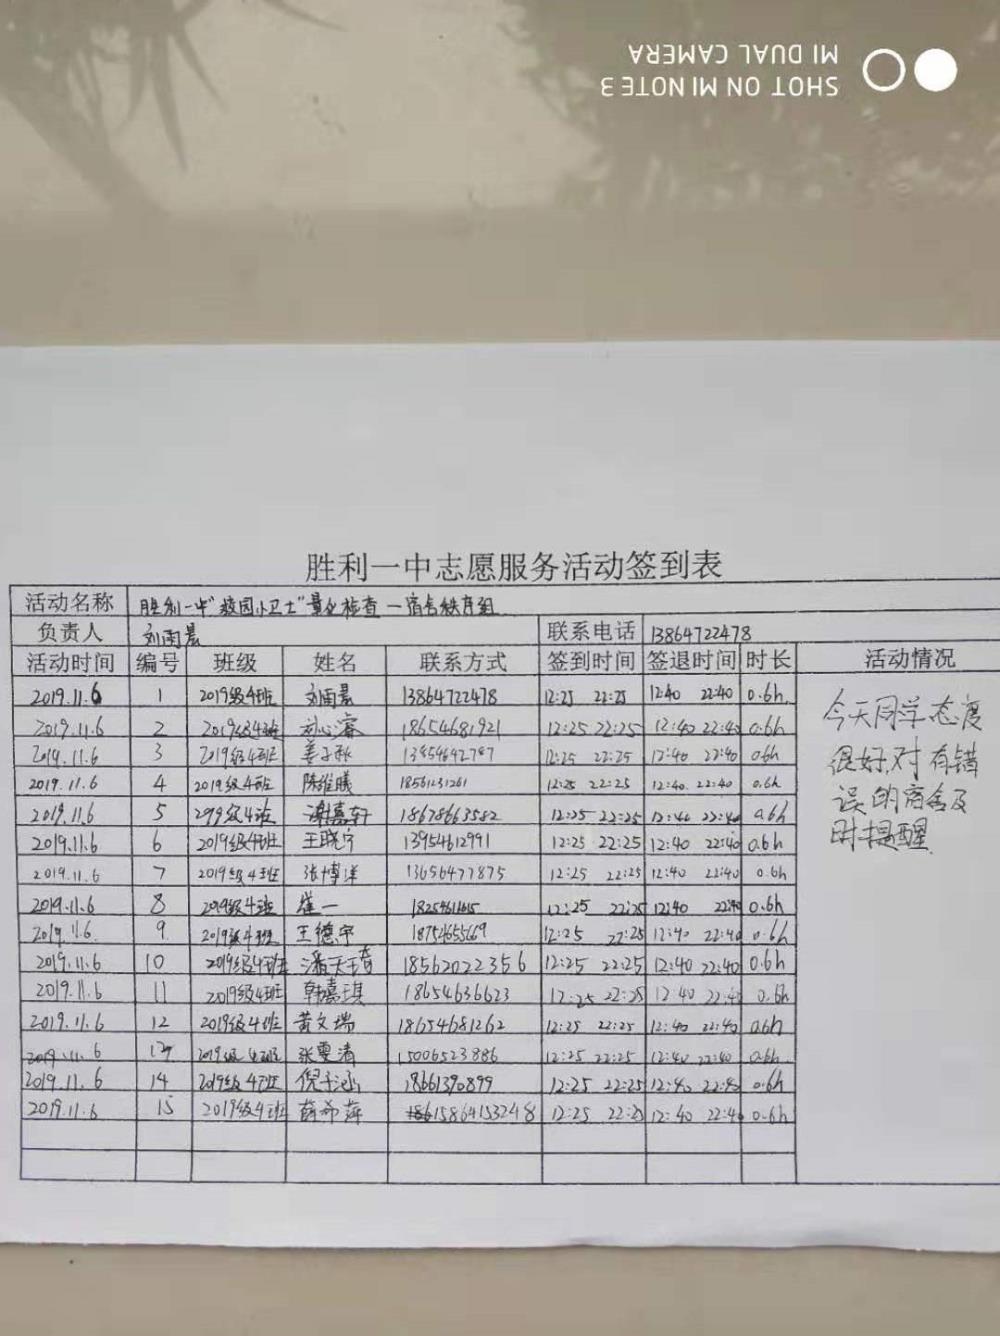 SHOT ON MI NOTE 3
MI DUAL CAMERA
胜利一中志愿服务活动签到表
活动名称 胜利一中"校园小卫士"量化检查—宿舍秩序组
负责人 刘雨晨 联系电话 13864722478
活动时间 编号 班级 姓名 联系方式 签到时间 签退时间 时长 活动情况
2019.11.6 1 2019级4班 刘雨晨 13864722478 12:25 22:25 12:40 22:40 0.6h
2019.11.6 2 2019级4班 18654681921 12:25 22:25 12:40 22:40 0.6h
2019.11.6 3 2019级4班 姜子秋 12:25 22:25 12:40 22:40 0.6h
2019.11.6 4 2019级4班 陈维曦 18561231261 12:25 22:25 12:40 22:40 0.6h
2019.11.6 5 4班 谢嘉轩 18678663582 12:25 22:25 12:40 22:40 0.6h
2019.11.6 6 2019级4班 王晓宁 13954612991 12:25 22:25 12:40 22:40 0.6h
2019.11.6 7 2019级4班 张博洋 13656477875 12:25 22:25 12:40 22:40 0.6h
2019.11.6 8 2019级4班 崔一 12:25 22:25 12:40 22:40 0.6h
2019.11.6 9 2019级4班 王德宇 18754655669 12:25 22:25 12:40 22:40 0.6h
2019.11.6 10 2019级4班 潘天琦 18562022356 12:25 22:25 12:40 22:40 0.6h
2019.11.6 11 2019级4班 韩嘉琪 18654636623 12:25 22:25 12:40 22:40 0.6h
2019.11.6 12 2019级4班 黄文瑞 18654681262 12:25 22:25 12:40 22:40 0.6h
2019.11.6 13 2019级4班 张雯清 15006523886 12:25 22:25 12:40 22:40 0.6h
2019.11.6 14 2019级4班 倪子涵 18661390899 12:25 22:25 12:40 22:40 0.6h
2019.11.6 15 2019级4班 薛希萍 15864153248 12:25 22:25 12:40 22:40 0.6h
今天同学态度
很好,对有错
误的宿舍及
时提醒.